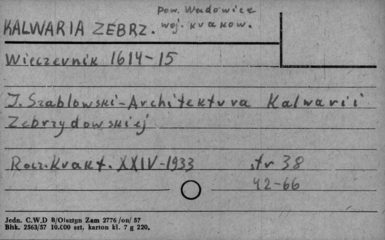 pow. Wadowice
KALWARIA ZEBRZ. woj. krakow.
Wieczernik 1614-15
J. Szablowski-Architektura Kalwarii
Zebrzydowskiej
Rocz. krakt. XXIV-1933 str 38
42-66
Jedn. C.W.D R/Olsztyn Zam 2776 /on/ 57
Blhk. 2563/57 10.000 szt, karton kl. 7 g 220,